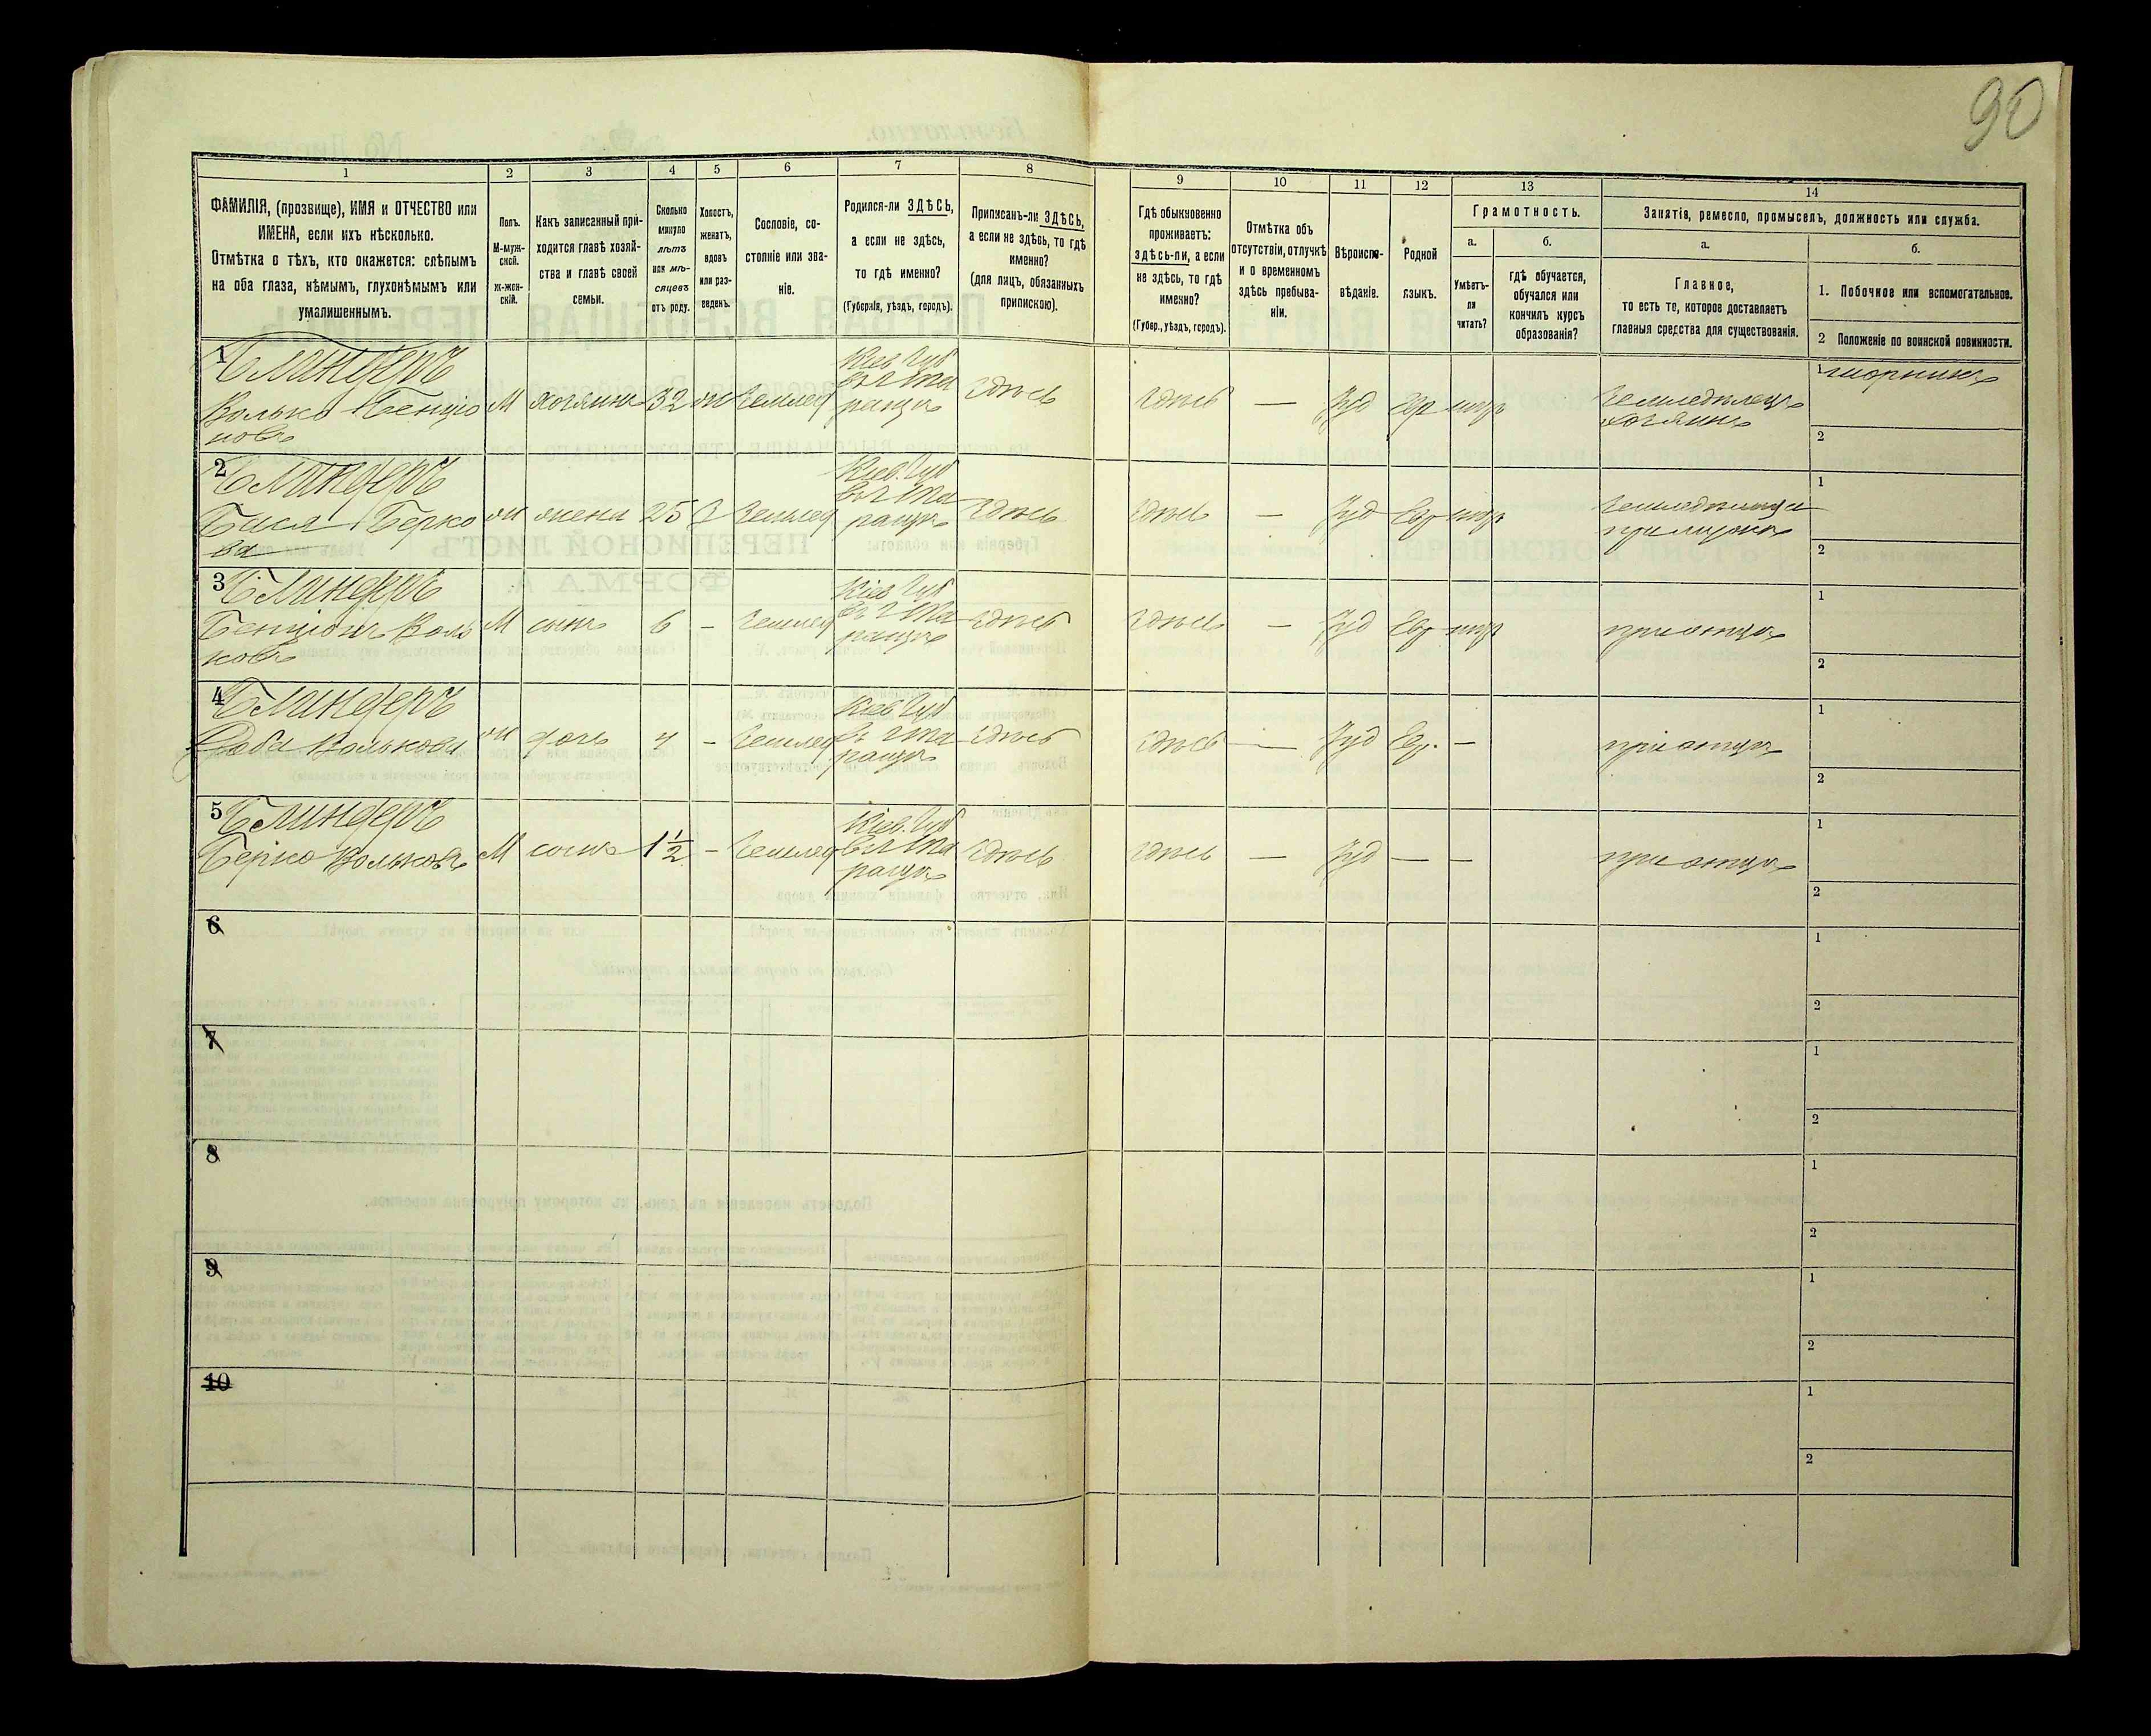 90
1
2
3
4
5
6
7
8
9
10
11
12
13
14
ФАМИЛІЯ, (прозвище), ИМЯ и ОТЧЕСТВО или
ИМЕНА, если ихъ нѣсколько.
Отмѣтка о тѣхъ, кто окажется: слѣпымъ
на оба глаза, нѣмымъ, глухонѣмымъ или
умалишеннымъ.
Полъ.
М-муж-
ской.
Ж-жен-
скій.
Какъ записанный при-
ходится главѣ хозяй-
ства и главѣ своей
семьи.
Сколько
минуло
лѣтъ
или мѣ-
сяцевъ
отъ роду.
Холостъ,
женатъ,
вдовъ
или раз-
веденъ.
Сословіе, со-
стояніе или зва-
ніе.
Родился-ли ЗДѢСЬ,
а если не здѣсь,
то гдѣ именно?
(Губернія, уѣздъ, городъ).
Приписанъ-ли ЗДѢСЬ,
а если не здѣсь, то гдѣ
именно?
(для лицъ, обязанныхъ
припискою).
Гдѣ обыкновенно
проживаетъ:
здѣсь-ли, а если
не здѣсь, то гдѣ
именно?
(Губер., уѣздъ, городъ).
Отмѣтка объ
отсутствіи, отлучкѣ
и о временномъ
здѣсь пребыва-
ніи.
Вѣроиспо-
вѣданіе.
Родной
языкъ.
Грамотность.
а.
Умѣетъ-
ли
читать?
б.
гдѣ обучается,
обучался или
кончилъ курсъ
образованія?
Занятія, ремесло, промыселъ, должность или служба.
а.
Главное,
то есть то, которое доставляетъ
главныя средства для существованія.
б.
1. Побочное или вспомогательное.
2 Положеніе по воинской повинности.
1
Блиндеръ
Волько Бенціо
новъ
М хозяинъ 32 Землед
Кіев. Губ
здѣсь
здѣсь — Іуд Евр
Земледѣлецъ
хозяинъ
1 шорникъ
2
2
Блиндеръ
Бася Берко
ва
жена 25 Землед
Кіев. Губ
здѣсь
здѣсь — Іуд Евр
при мужѣ
1
2
3
Блиндеръ
Бенціонъ Воль
ковъ
М сынъ 6 — Землед
Кіев Губ
здѣсь
здѣсь — Іуд Евр
при отцѣ
1
2
4
Блиндеръ
Волькова
дочь 4 — Землед
Кіев Губ
здѣсь
здѣсь — Іуд Евр. —
при отцѣ
1
2
5
Блиндеръ
Берко Вольковъ
М сынъ 1½ — Землед
Кіев. Губ
здѣсь
здѣсь — Іуд — —
при отцѣ
1
2
6
1
2
7
1
2
8
1
2
9
1
2
10
1
2